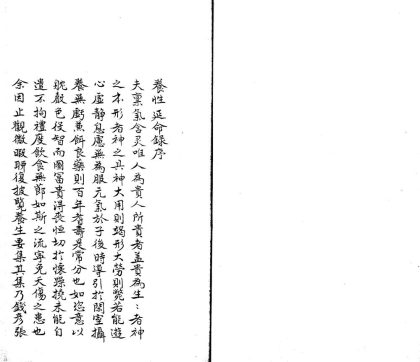 養性延命錄序
夫禀氣含灵唯人為貴人所貴者盖貴為生:者神
之本形者神之具神大用則竭形大勞則斃若能遊
心虛静息慮無為服元氣於子後時導引於閑室攝
養無虧兼餌良藥則百年耆壽是常分也如恣意以
耽聲色役智而圖富貴得喪恒切於懷躁撓未能自
遣不拘禮度飲食無節如斯之流寧免夭傷之患也
余因止觀微暇聊復披覽養生要集其集乃錢彥張